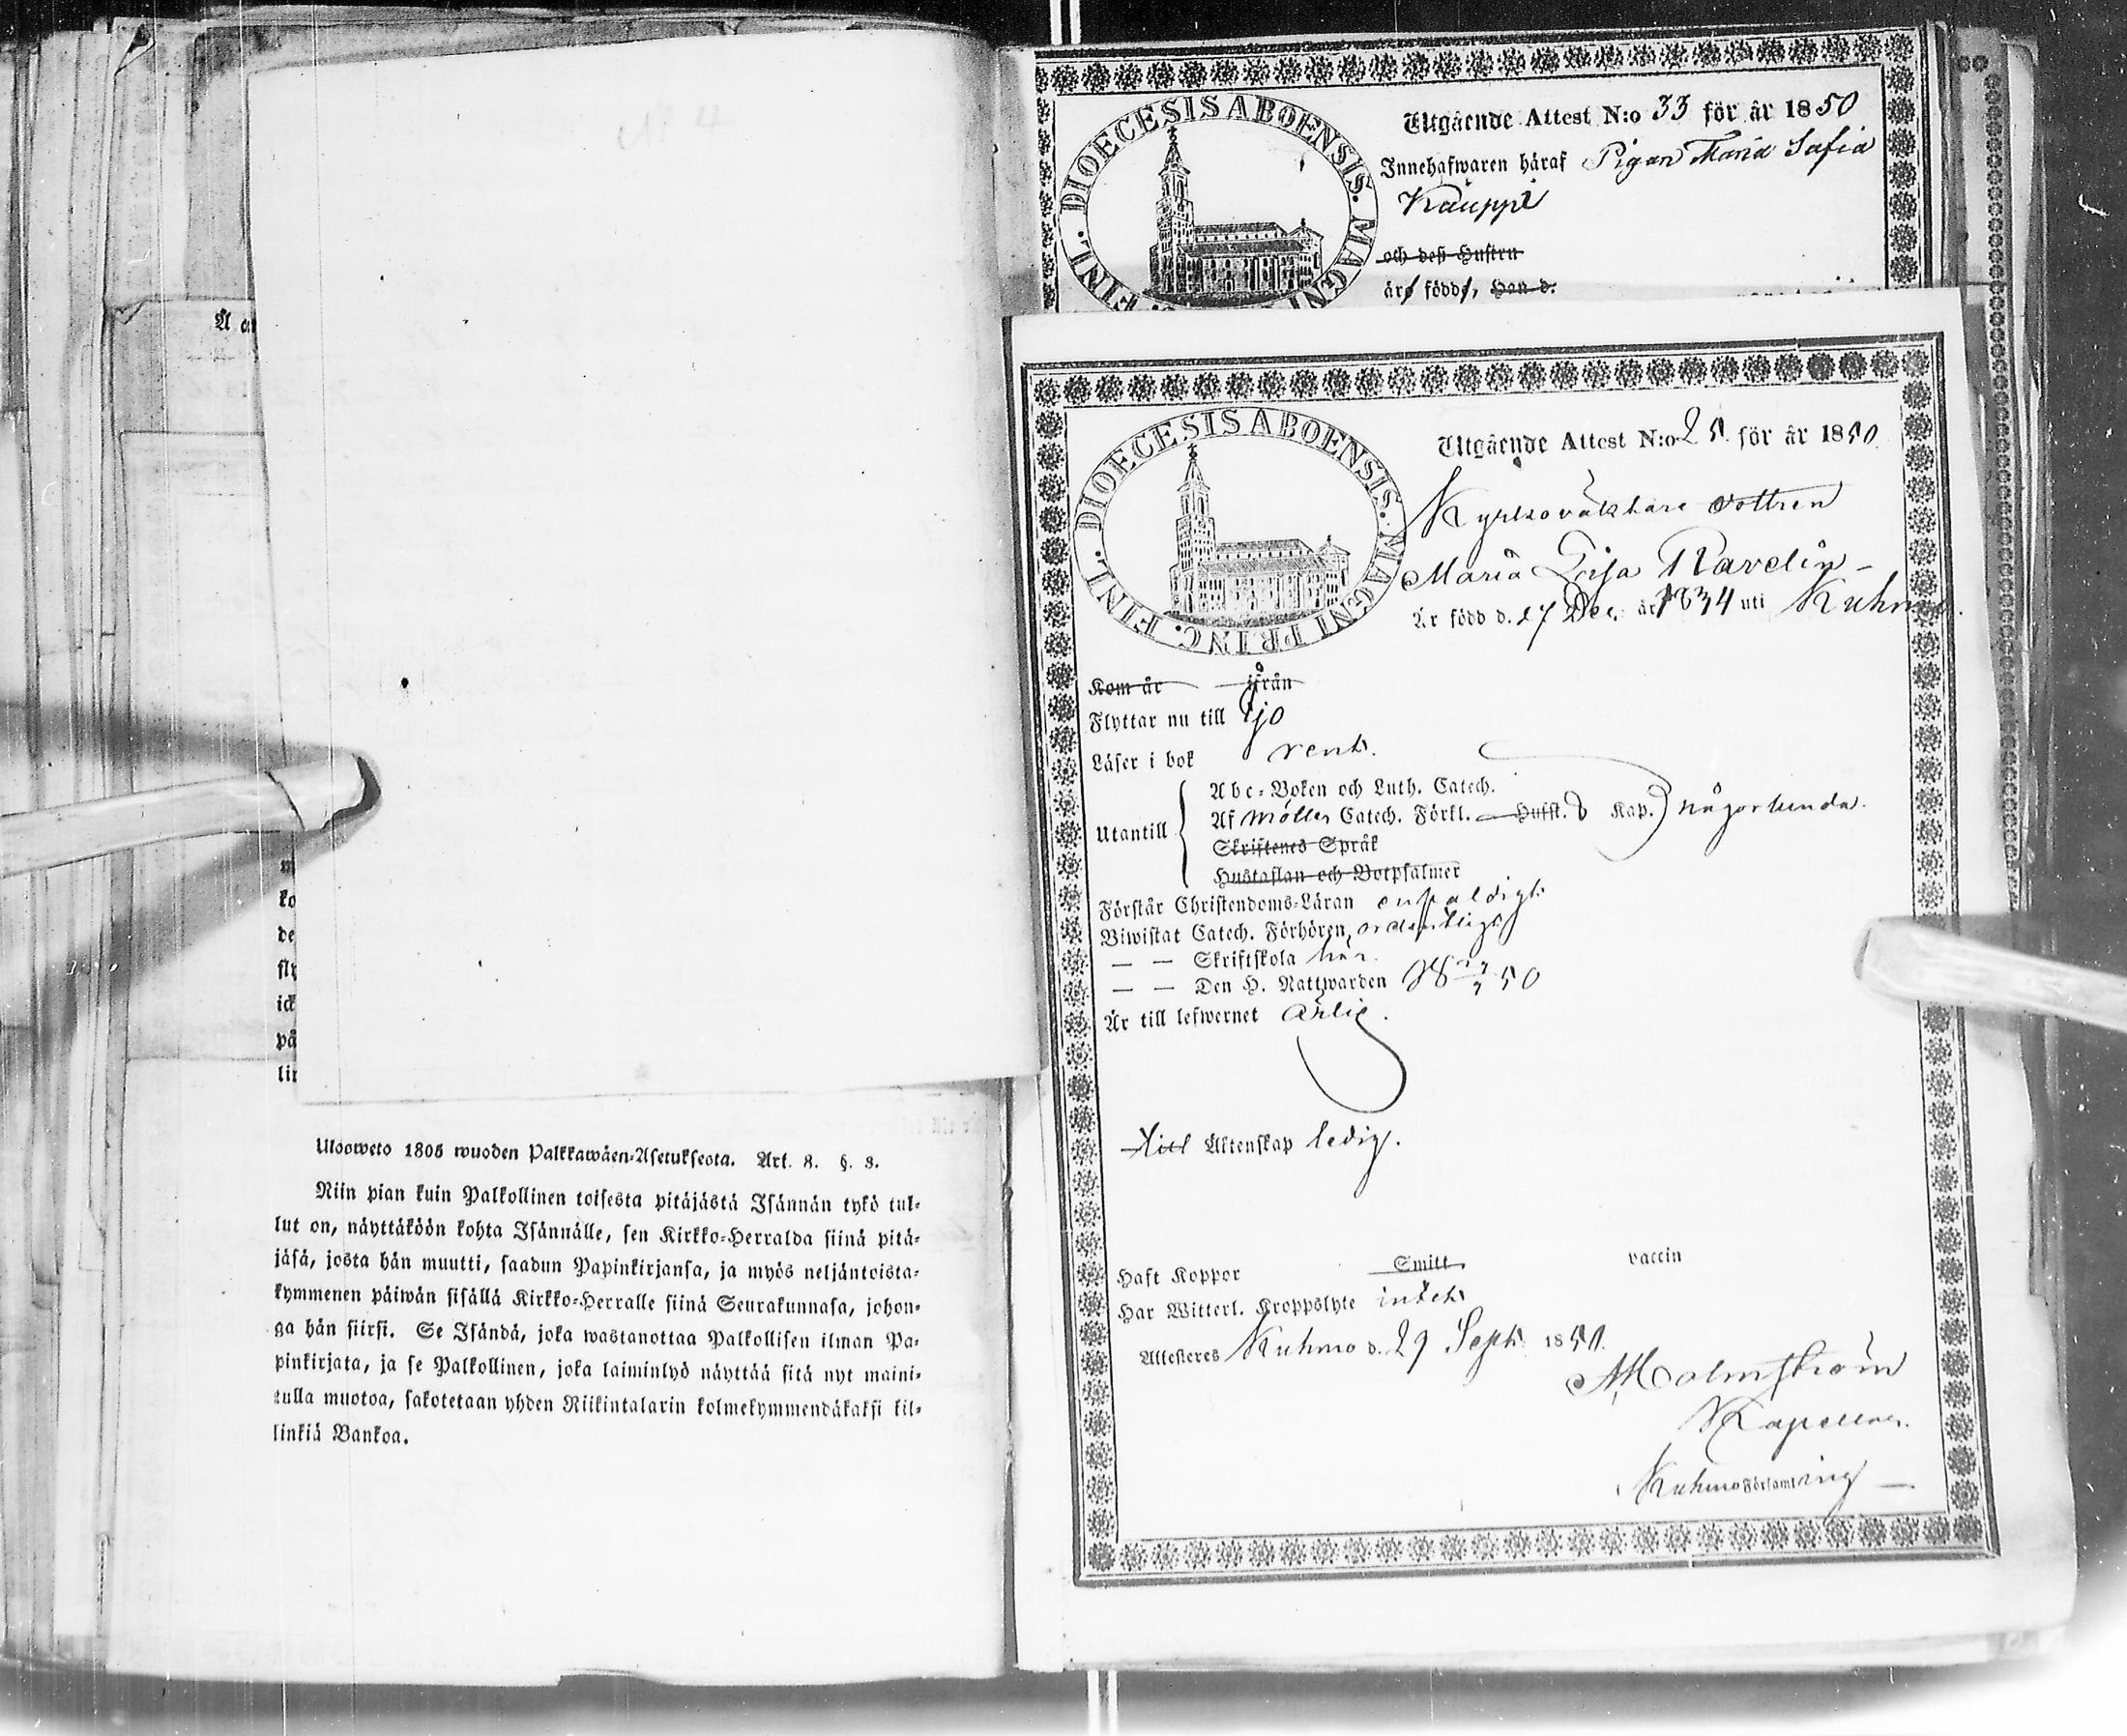 Å a
m
ko
de
fly
ick
på
lin
Ulosweto 1805 wuoden Palkkawäen-Asetuksesta. Art. 8. §. 8.
Niin pian kuin Palkollinen toisesta pitäjästä Isännän tykö tul-
lut on, näyttäköön kohta Isännälle, sen Kirkko-Herralda siinä pitä-
jäsä, josta hän muutti, saadun Papinkirjansa, ja myös neljäntoista-
kymmenen päiwän sisällä Kirkko-Herralle siinä Seurakunnasa, johon-
ga hän siirsi. Se Isändä, joka wastanottaa Palkollisen ilman Pa-
pinkirjata, ja se Palkollinen, joka laiminlyö näyttää sitä nyt maini-
tulla muotoa, sakotetaan yhden Riikintalarin kolmekymmendäkaksi kil-
linkiä Bankoa.
DIOECESIS ABOENSIS. MAGNI FINL.
Utgående Attest N:o 33 för år 1850
Innehafwaren häraf Pigan Maria Safia
Kauppi
och deß Hustru
äro födde, Han d.
DIOECESIS ABOENSIS. MAGNI PRINC. FINL.
Utgående Attest N:o 25 för år 1850
Kyrkoväktare dottren
Maria Lisa Ravelin
Är född d. 27 Dec. år 1834 uti Kuhmo.
Kom år ifrån
Flyttar nu till Ijo
Läser i bok rent.
Utantill
Abc-Boken och Luth. Catech.
Af Möller Catech. Förkl. Husst. 8 Kap. någorlunda.
Skriftenes Språk
Hustaflan och Botpsalmer
Förstår Christendoms-Läran enfaldigt
Biwistat Catech. Förhören ordentligt
— — Skriftskola här.
— — Den H. Nattwarden 50
Är till lefwernet ärlig.
Till Äktenskap ledig.
Haft Koppor Smitt vaccin
Har Witterl. Kroppslyte intet
Attesteres Kuhmo d. 29 Sept. 1850.
A Malmström
Kapellan
Kuhmo Församling